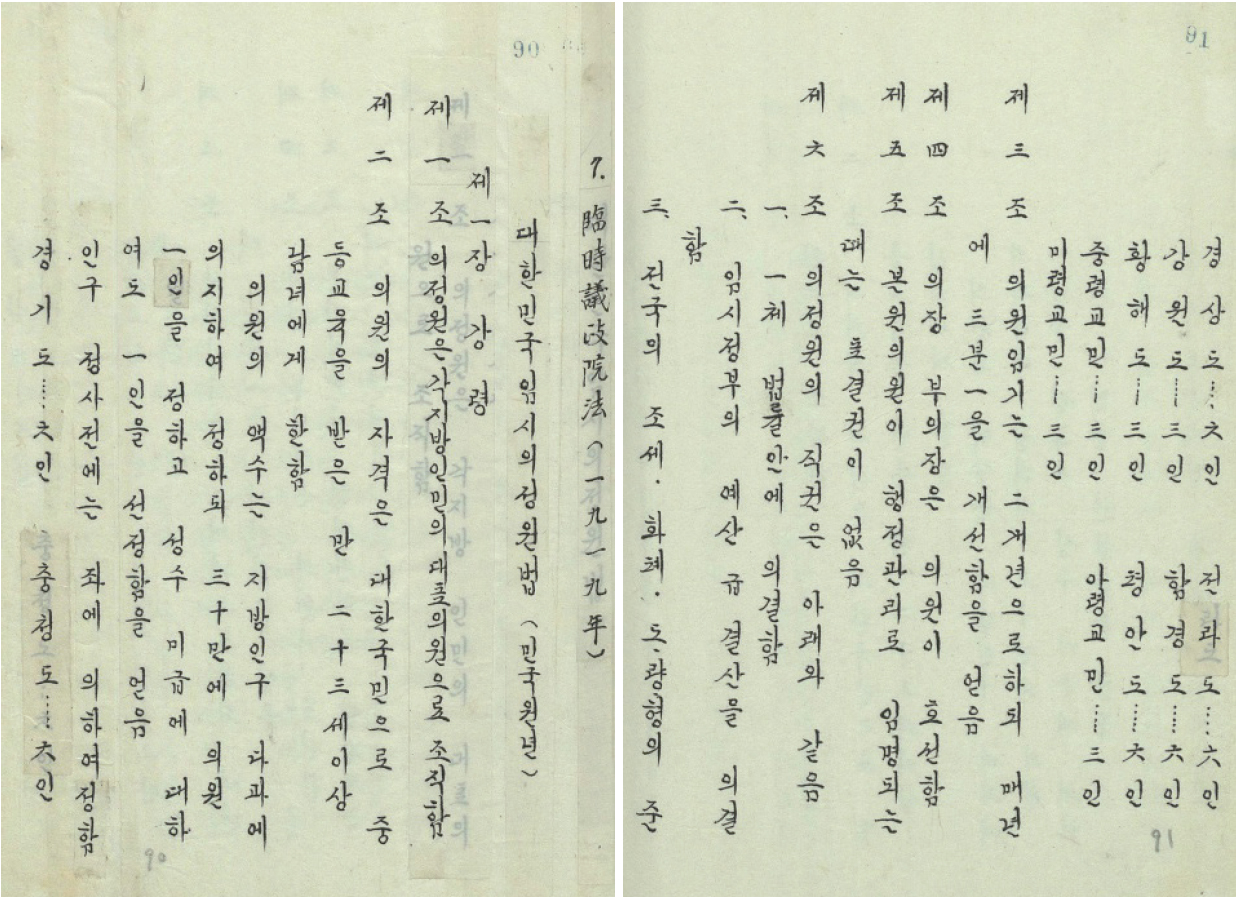 90
7. 臨時議政院法(一九一九年)
대한민국임시의정원법 (민국원년)
제一장 강령
제一조 의정원은 각지방인민의 대표의원으로 조직함
제二조 의원의 자격은 대한국민으로 중
등교육을 받은 만 二十三세이상
남녀에게 한함
의원의 액수는 지방인구 다과에
의지하여 정하되 三十만에 의원
一인을 정하고 성수 미급에 대하
여도 一인을 선정함을 얻음
인구 정사전에는 좌에 의하여정함
경기도……六인 충청도……六인
90
91
경상도……六인 전라도……六인
강원도……三인 함경도……六인
황해도……三인 평안도……六인
중령교민……三인 아령교민……三인
미령교민……三인
제三조 의원임기는 二개년으로하되 매년
에 三분一을 개선함을 얻음
제四조 의장 부의장은 의원이 호선함
제五조 본원의원이 행정관리로 임명되는
때는 표결권이 없음
제六조 의정원의 직권은 아래와 같음
一、 一체 법률안에 의결함
二、 임시정부의 예산 급 결산을 의결
함
三、 전국의 조세·화폐·도·량형의 준
91